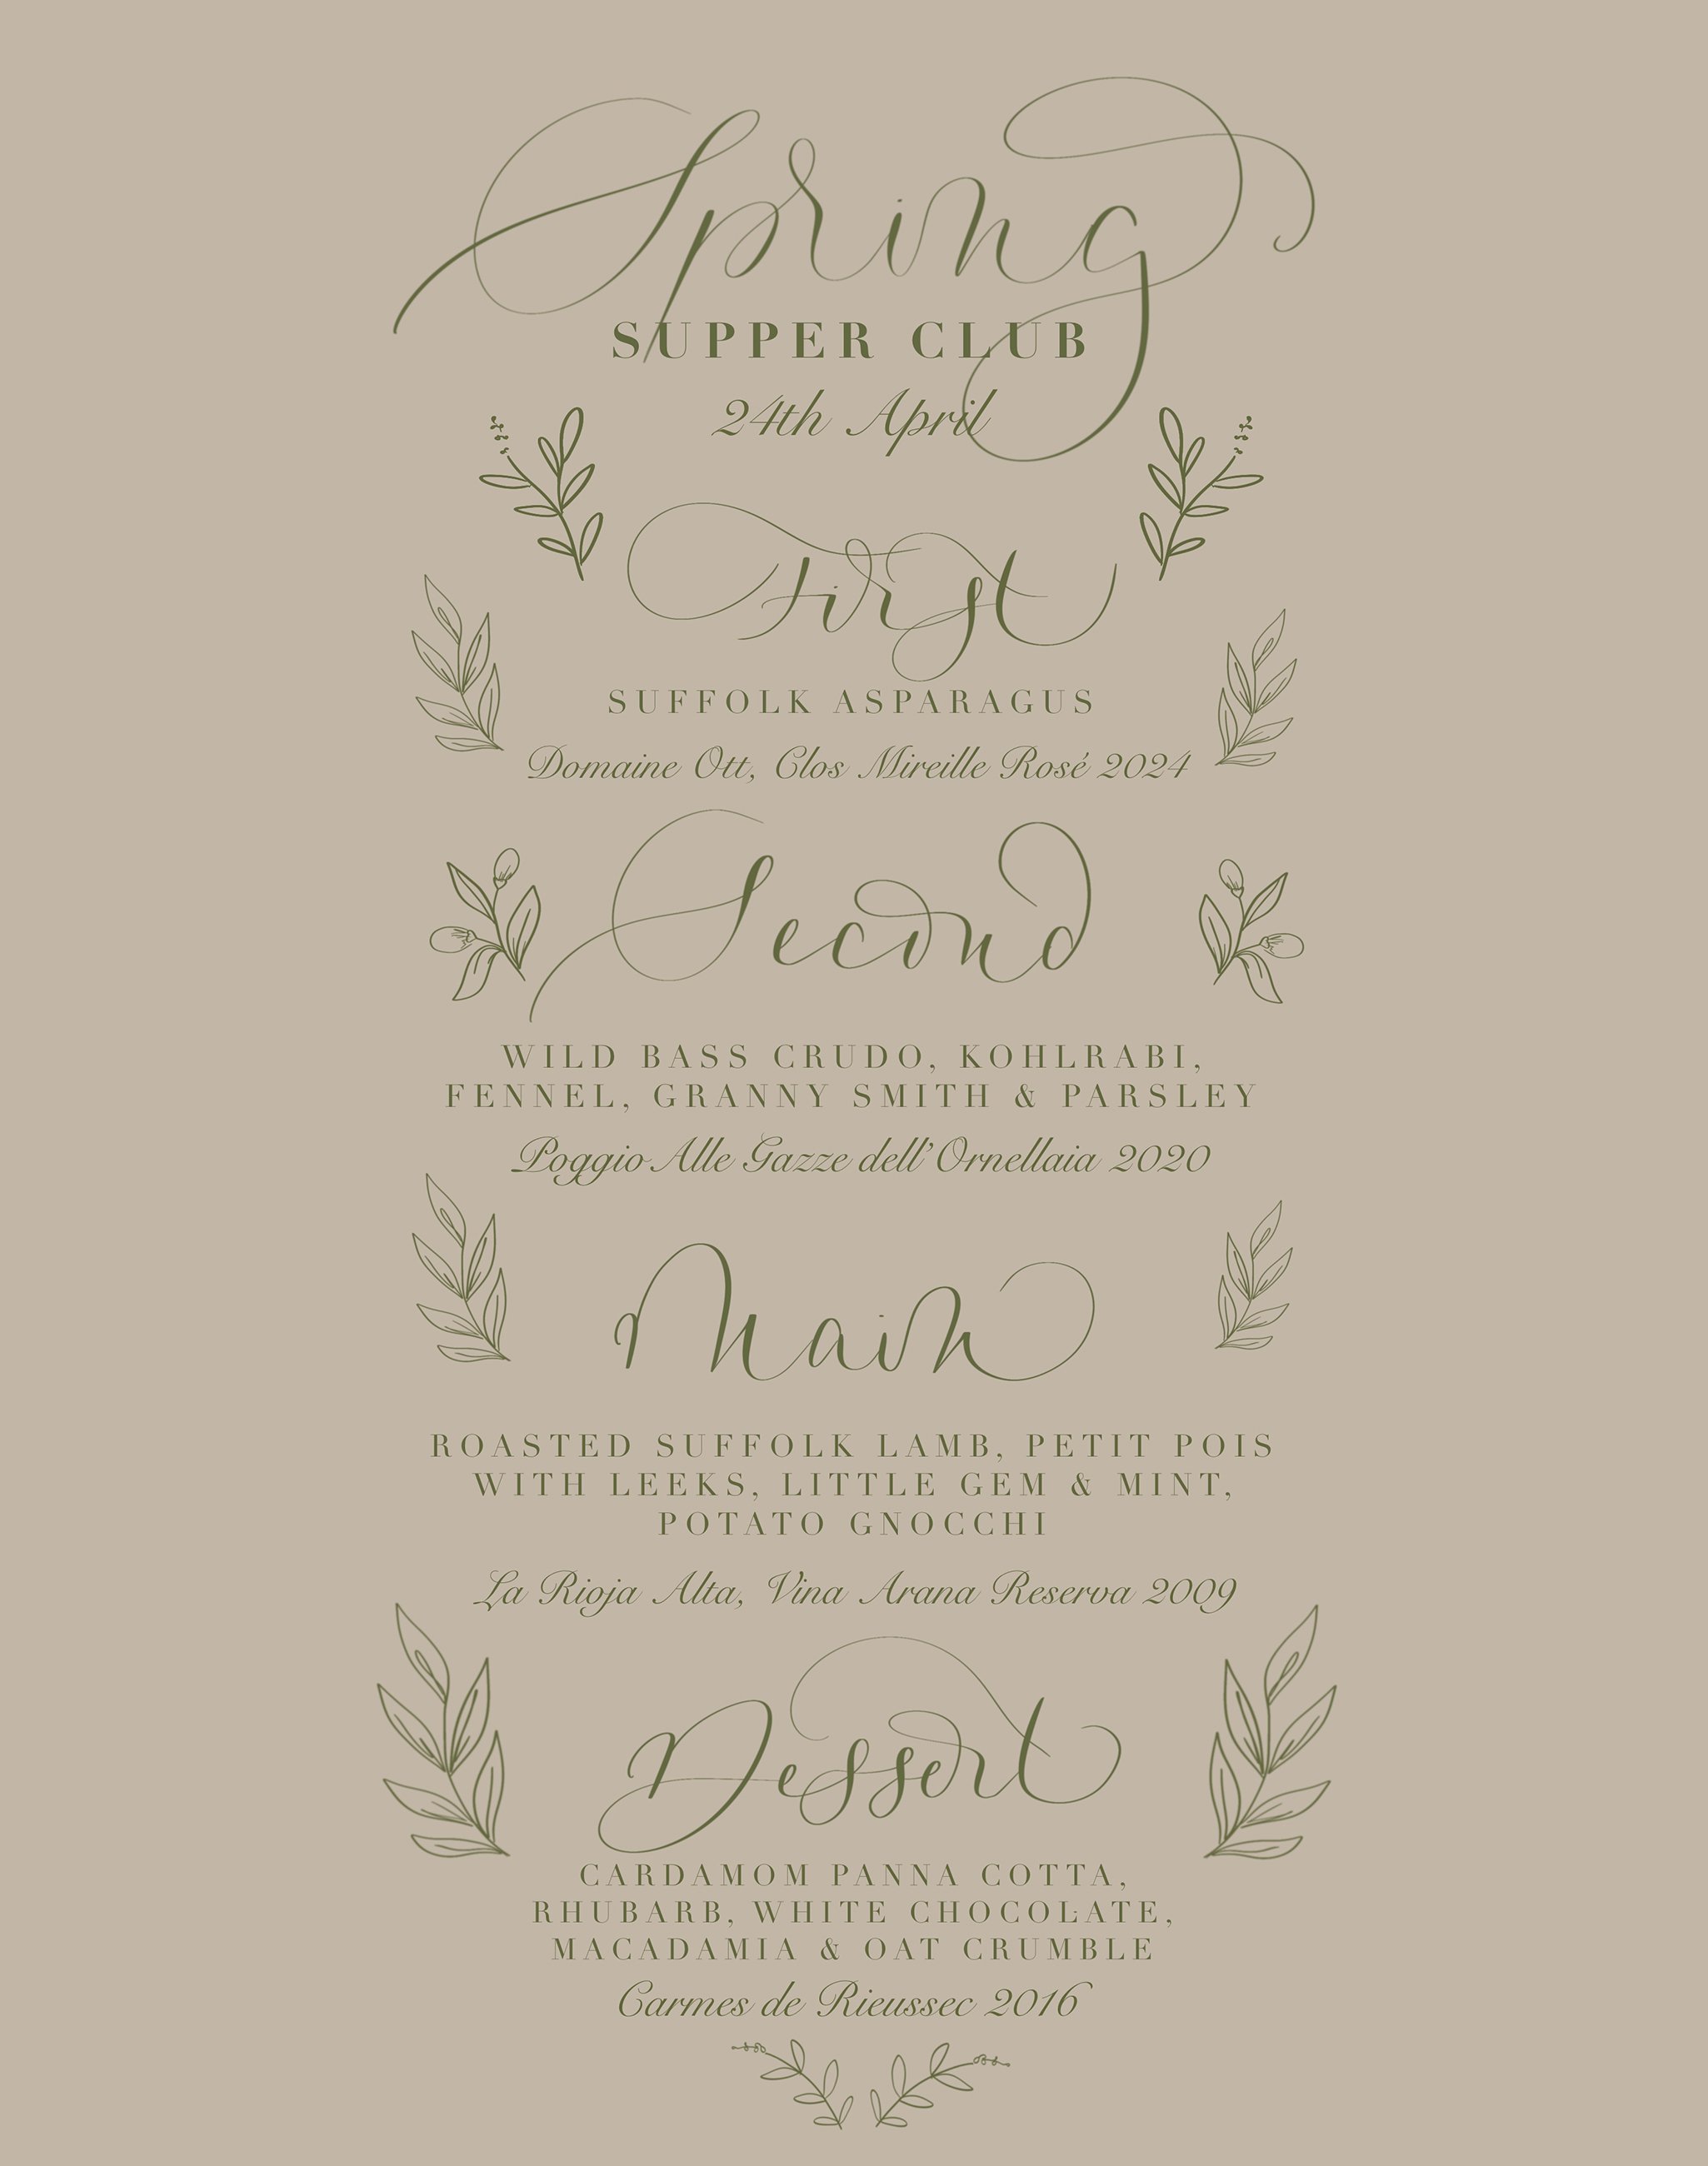 Spring
SUPPER CLUB
24th April
First
SUFFOLK ASPARAGUS
Domaine Ott, Clos Mireille Rosé 2024
Second
WILD BASS CRUDO, KOHLRABI,
FENNEL, GRANNY SMITH & PARSLEY
Poggio Alle Gazze dell' Ornellaia 2020
Main
ROASTED SUFFOLK LAMB, PETIT POIS
WITH LEEKS, LITTLE GEM & MINT,
POTATO GNOCCHI
La Rioja Alta, Vina Arana Reserva 2009
Dessert
CARDAMOM PANNA COTTA,
RHUBARB, WHITE CHOCOLATE,
MACADAMIA & OAT CRUMBLE
Carmes de Rieussec 2016